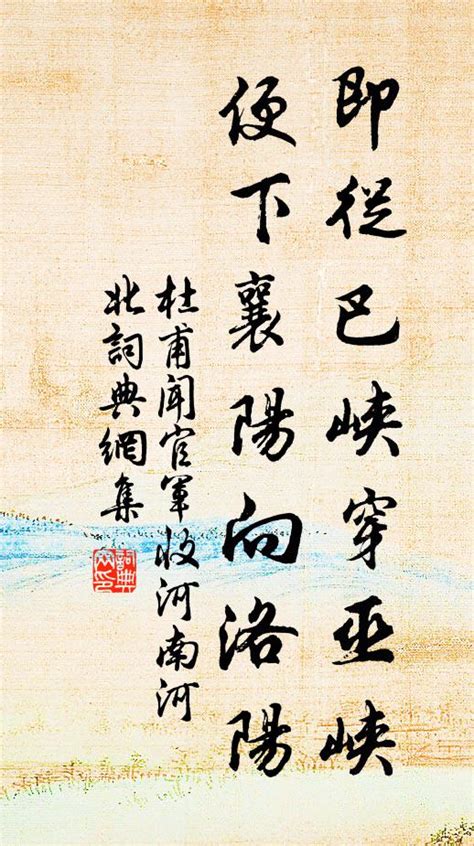 即從巴峽穿巫峽
便下襄陽向洛陽
杜甫聞官軍收河南河
北詞典網集
詞典
网印